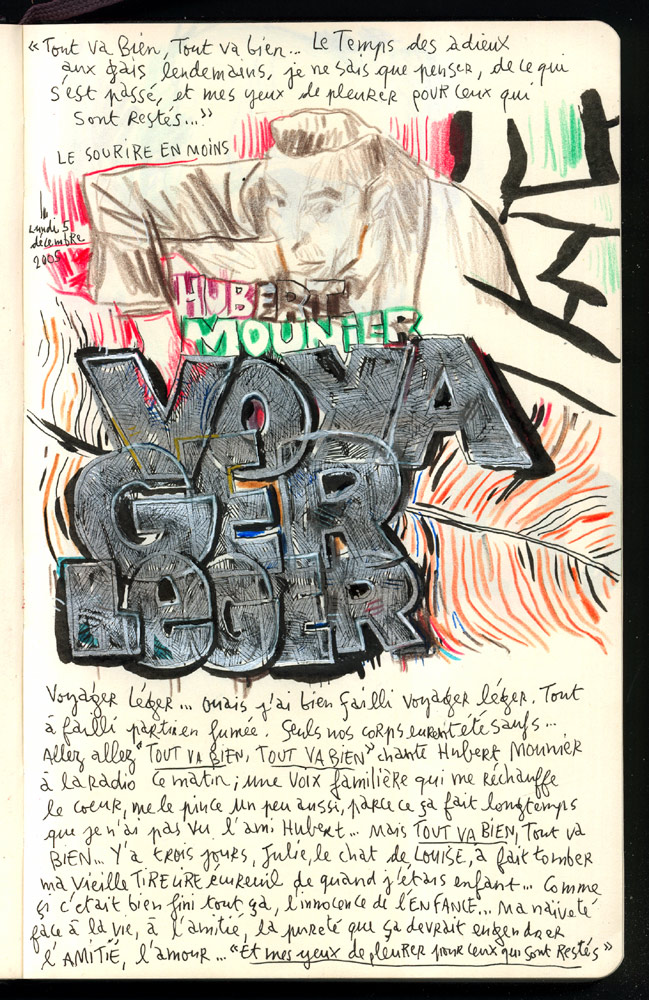 « Tout va Bien, Tout va bien... Le Temps des adieux
aux gais lendemains, je ne sais que penser, de ce qui
s'est passé, et mes yeux de pleurer pour ceux qui
sont Restés... »
LE SOURIRE EN MOINS
Lundi 5
décembre
2005
HUBERT
MOUNIER
VOYA
GER
LEGER
Voyager Léger... ouais j'ai bien failli voyager léger. Tout
à failli partir en fumée. Seuls nos corps eurent été saufs...
Allez allez "TOUT VA BIEN, TOUT VA BIEN" chante Hubert Mounier
à la radio ce matin; une voix familière qui me réchauffe
le coeur, me le pince un peu aussi, parce ce ça fait longtemps
que je n'ai pas vu l'ami Hubert... mais TOUT VA BIEN, Tout va
BIEN... Y'a trois jours, Julie, le chat de LOUISE, a fait tomber
ma vieille TIRELIRE écureuil de quand j'étais enfant... Comme
si c'était bien fini tout ça, l'innocence de l'ENFANCE... Ma naïveté
face à la vie, à l'amitié, la pureté que ça devrait engendrer
l'AMITIÉ, l'amour... "Et mes yeux de pleurer pour ceux qui sont Restés"